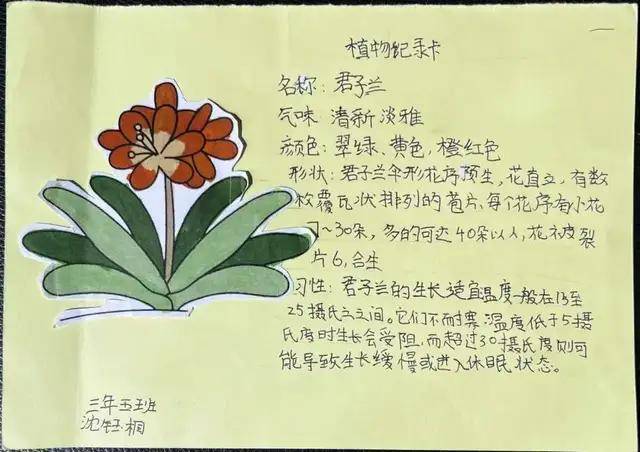 植物纪录卡
名称：君子兰
气味 清新淡雅
颜色：翠绿、黄色，橙红色
形状：君子兰伞形花序顶生，花直立，有数
枚覆瓦状排列的苞片，每个花序有小花
7～30朵，多的可达40朵以上，花被裂
片6，合生
习性：君子兰的生长适宜温度一般在15至
25摄氏之之间。它们不耐寒，温度低于5摄
氏度时生长会受阻，而超过30摄氏度则可
能导致生长缓慢或进入休眠状态。
三年五班
沈钰桐